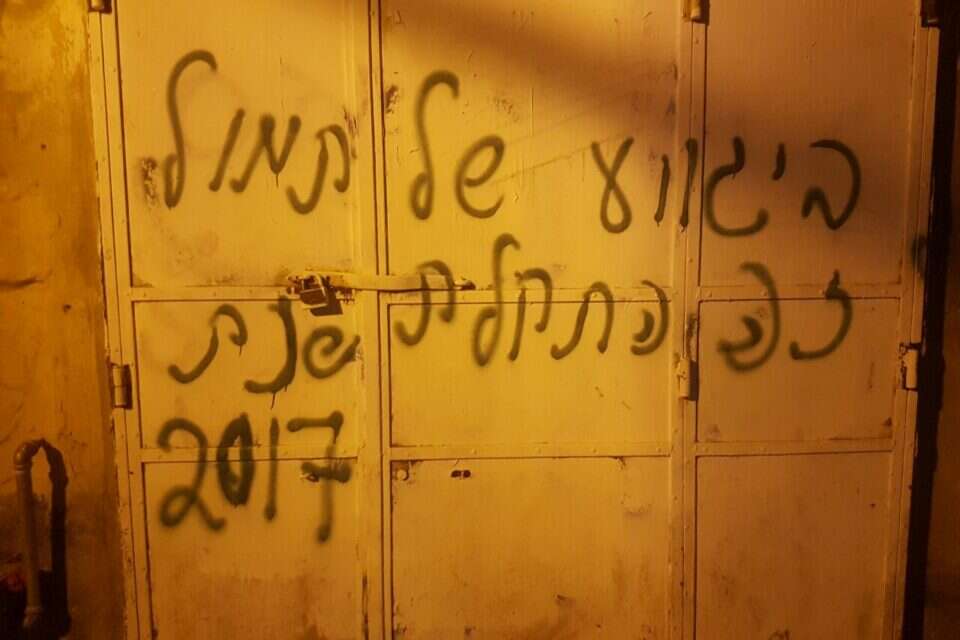 ביגווע של תמול
זה התקלת שנת
2017